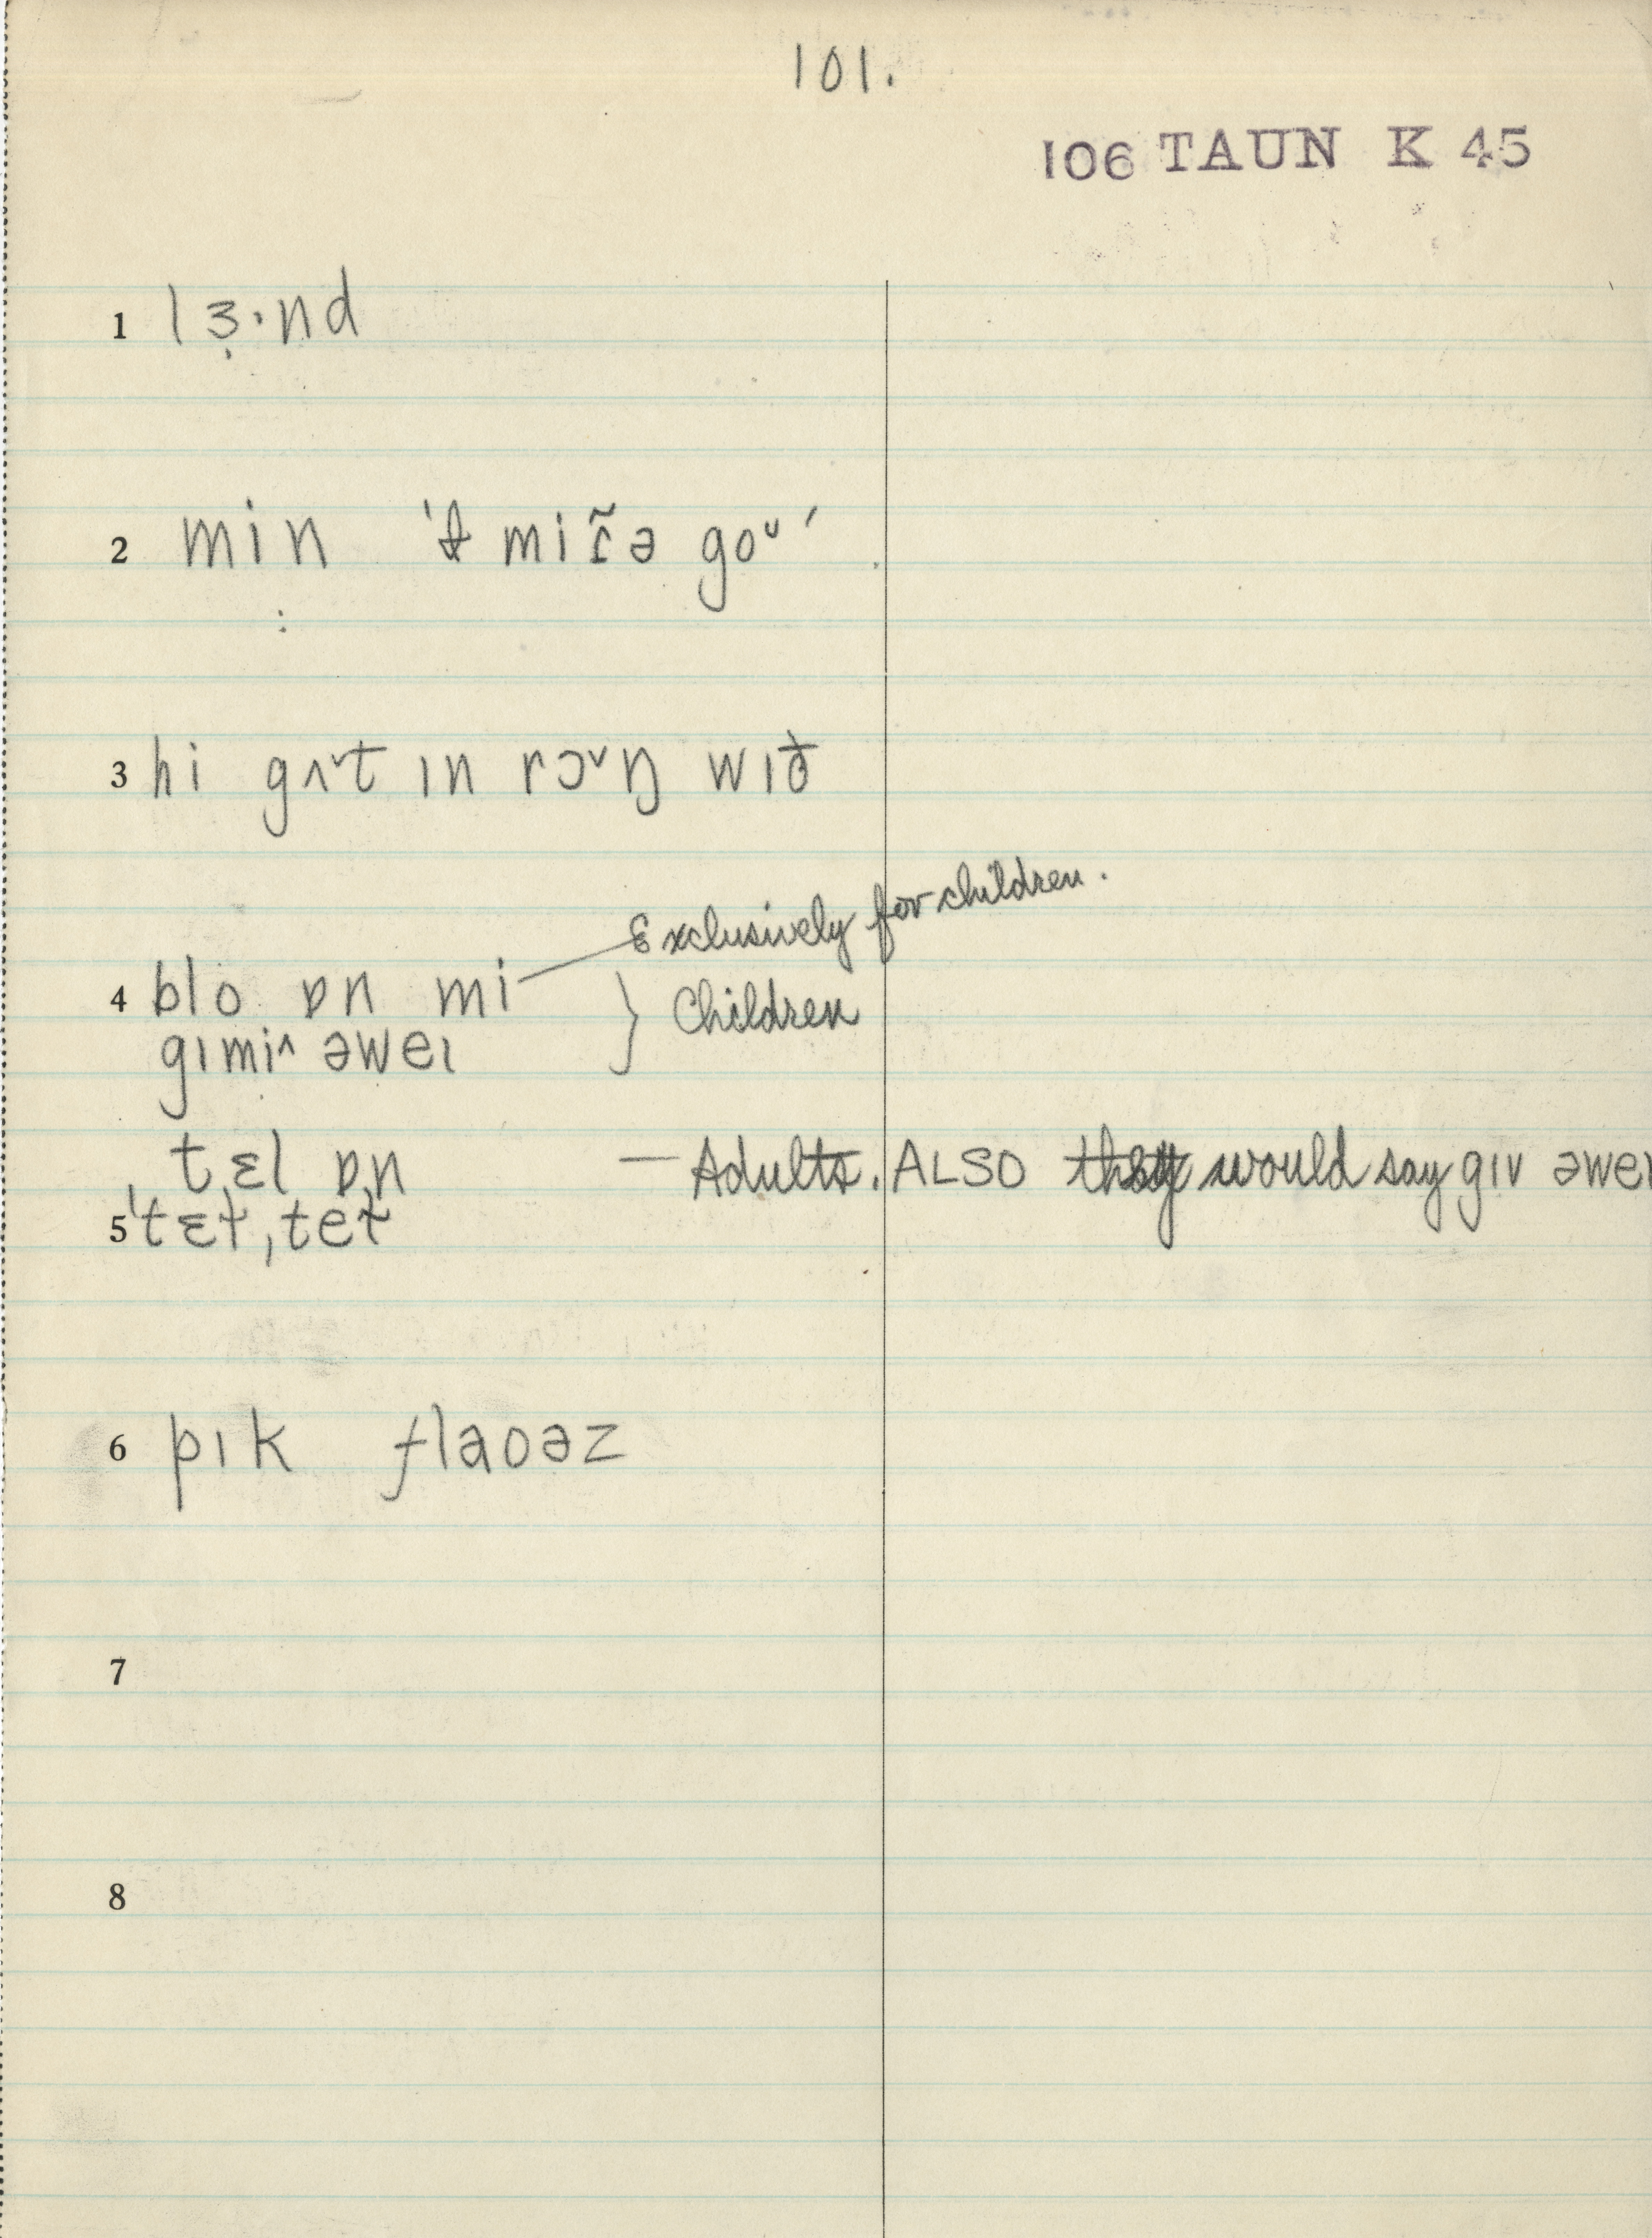 101.
106 TAUN K 45
1 lɜ̣·nd
2 min 'ɑ miɾ̃ə goᵘ'
3 hi gʌ˅t ɪn rɔ˅ŋ wɪð
Exclusively for children.
4 blo ɒn mi } Children
gɪmi^ əweɪ
tɛl ɒn — Adults. ALSO they would say gɪv əweɪ
5 'tɛt, tet
6 pɪk flaoəz
7
8